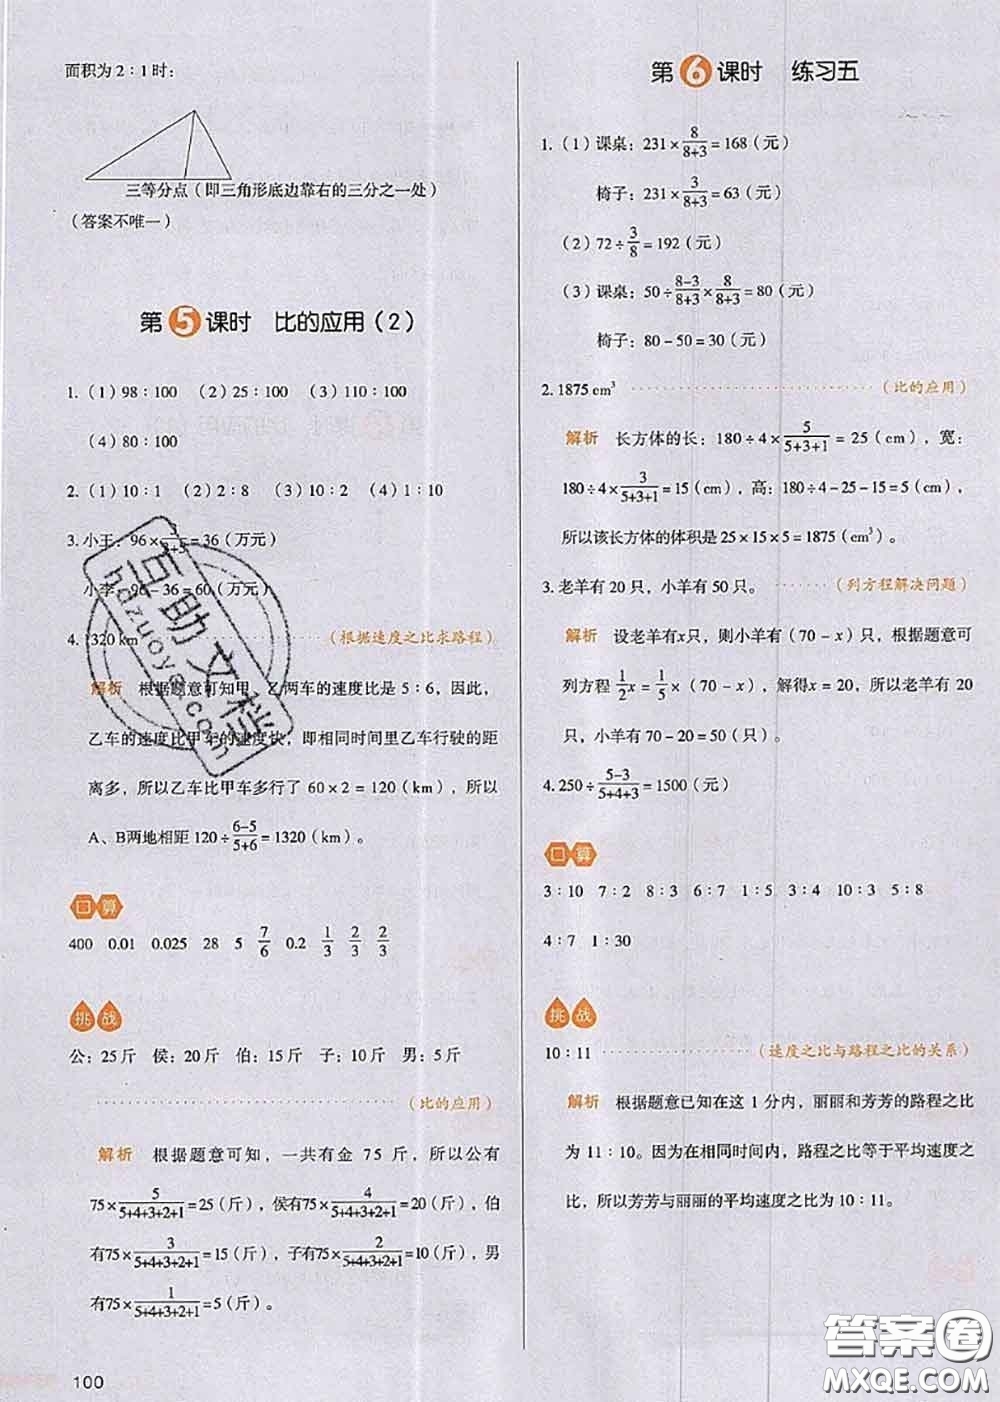 面积为2∶1时：
三等分点（即三角形底边靠右的三分之一处）
（答案不唯一）
第5课时 比的应用（2）
1.（1）98∶100 （2）25∶100 （3）110∶100
（4）80∶100
2.（1）10∶1 （2）2∶8 （3）10∶2 （4）1∶10
3. 小王：96×3/(3+5)=36（万元）
小李：96-36=60（万元）
4. 1320 km ……（根据速度之比求路程）
解析 根据题意可知甲、乙两车的速度比是5∶6，因此，
乙车的速度比甲车的速度快，即相同时间里乙车行驶的距
离多，所以乙车比甲车多行了60×2=120（km），所以
A、B两地相距120÷(6-5)/(5+6)=1320（km）。
口算
400 0.01 0.025 28 5 7/6 0.2 1/3 2/3 2/3
挑战
公：25斤 侯：20斤 伯：15斤 子：10斤 男：5斤
……（比的应用）
解析 根据题意可知，一共有金75斤，所以公有
75×5/(5+4+3+2+1)=25（斤），侯有75×4/(5+4+3+2+1)=20（斤），伯
有75×3/(5+4+3+2+1)=15（斤），子有75×2/(5+4+3+2+1)=10（斤），男
有75×1/(5+4+3+2+1)=5（斤）。
100
第6课时 练习五
1.（1）课桌：231×8/(8+3)=168（元）
椅子：231×3/(8+3)=63（元）
（2）72÷3/8=192（元）
（3）课桌：50÷(8-3)/(8+3)×8/(8+3)=80（元）
椅子：80-50=30（元）
2. 1875 cm³ ……（比的应用）
解析 长方体的长：180÷4×5/(5+3+1)=25（cm），宽：
180÷4×3/(5+3+1)=15（cm），高：180÷4-25-15=5（cm），
所以该长方体的体积是25×15×5=1875（cm³）。
3. 老羊有20只，小羊有50只。……（列方程解决问题）
解析 设老羊有x只，则小羊有（70-x）只，根据题意可
列方程1/2x=1/5×（70-x），解得x=20，所以老羊有20
只，小羊有70-20=50（只）。
4. 250÷(5-3)/(5+4+3)=1500（元）
口算
3∶10 7∶2 8∶3 6∶7 1∶5 3∶4 10∶3 5∶8
4∶7 1∶30
挑战
10∶11 ……（速度之比与路程之比的关系）
解析 根据题意已知在这1分内，丽丽和芳芳的路程之比
为11∶10。因为在相同时间内，路程之比等于平均速度之
比，所以芳芳与丽丽的平均速度之比为10∶11。
百助文档
hdzuoye.com
答案圈
MXQE.COM